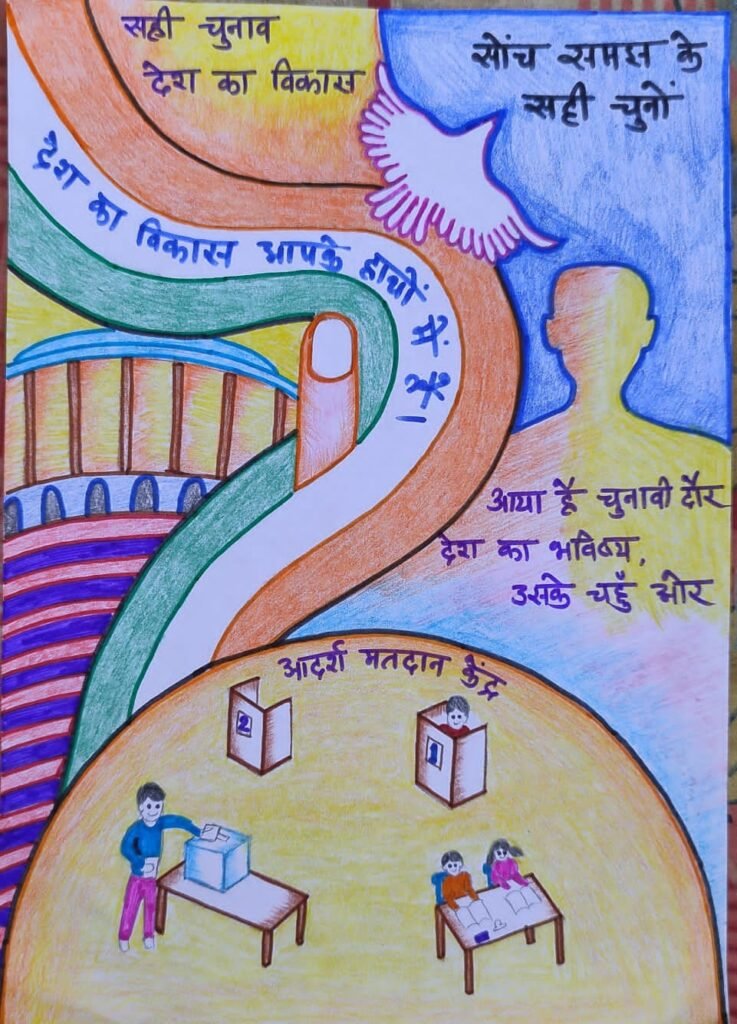 सही चुनाव
देश का विकास
सोंच समझ के
सही चुनों
देश का विकास आपके हाथों में है।
आया है चुनावी दौर
देश का भविष्य,
उसके चहुँ ओर
आदर्श मतदान केंद्र
2
1